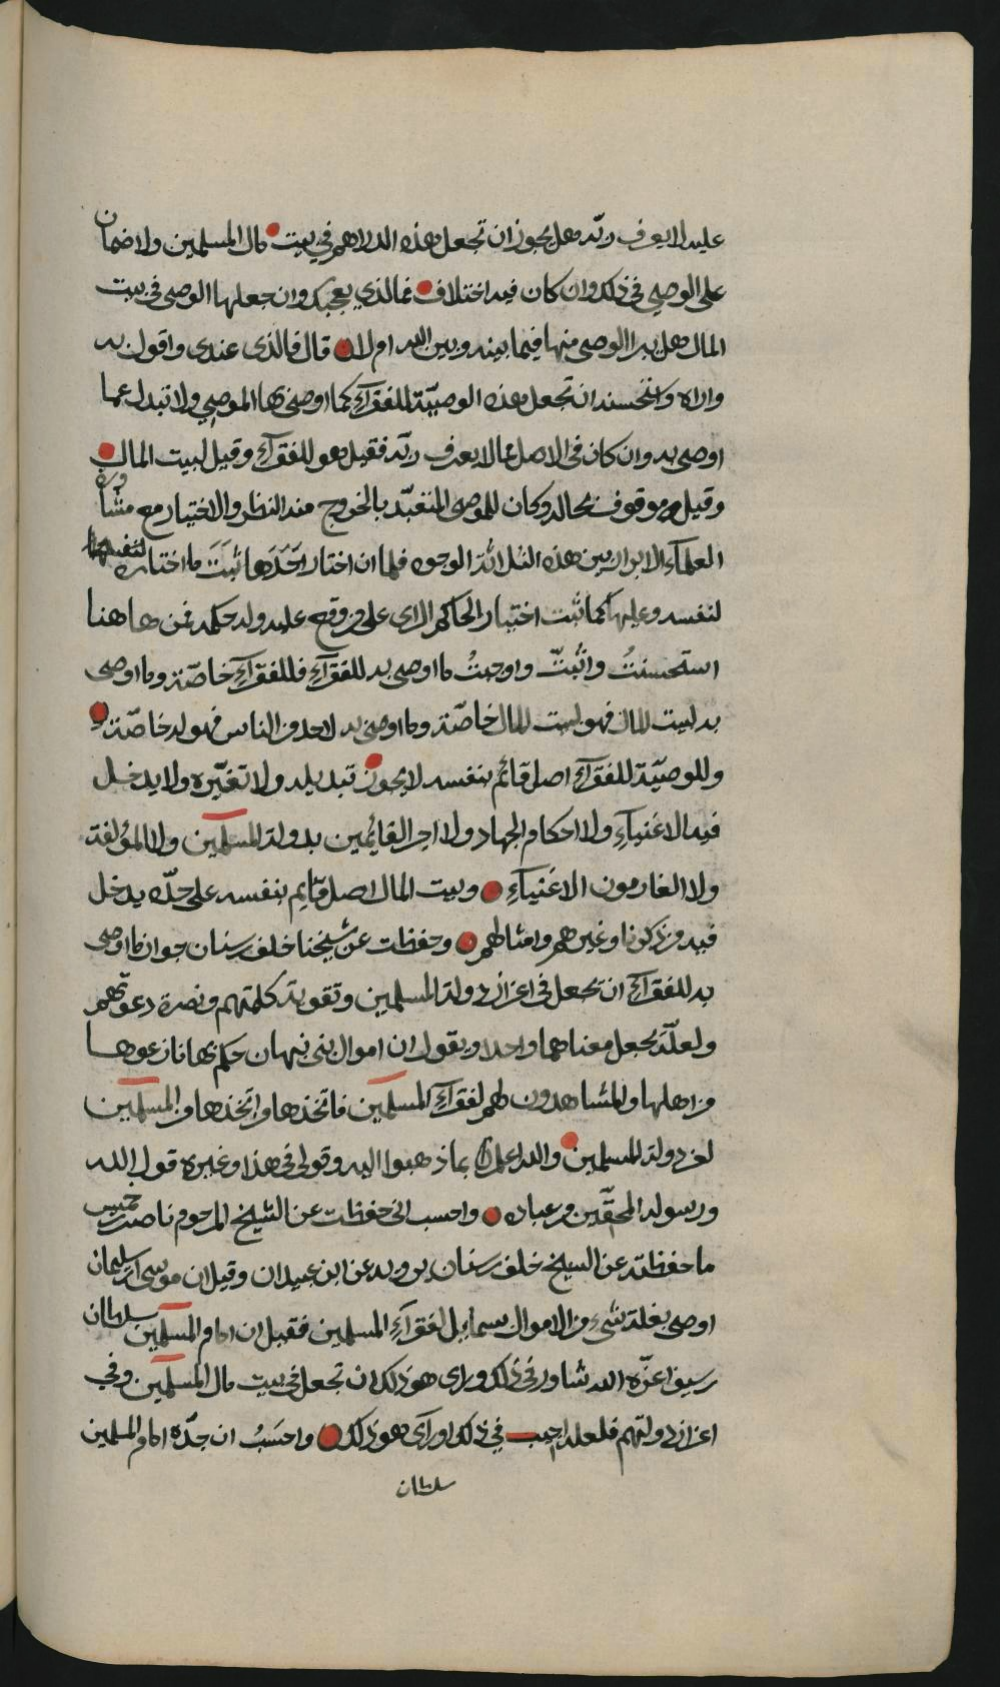 عليه لا يعرف ربّه هل يجوز ان تجعل هذه الدراهم في بيت مال المسلمين ولا ضمان
على الوصي في ذلك وان كان فيه اختلاف فما الذي يعجبك وان جعلها الوصى في بيت
المال هل يبرا الوصى منها فيما بينه وبين الله ام لا قال فالذى عندى واقول به
واراه واستحسنه ان تجعل هذه الوصيّة للفقرآء كما اوصى بها الموصي ولا تبدل عما
اوصى به وان كان في الاصل مما لا يعرف ربّه فقيل هو للفقرآء وقيل لبيت المال
وقيل هو موقوف بحاله وكان للموصى المتعبّد بالخروج منه النظر والاختيار مع مشاورة
العلمآء الابرار بين هذه الثلاثة الوجوه فلما ان اختار احَدَها ثبَتَ ما اختاره لنفسه
لنفسه وعليها كما ثبت اختيار الحاكم الراى على من وقع عليه وله حكمه فمن هاهنا
استحسنتُ واثبتّ واوجبتُ ما اوصى به للفقرآء فللفقرآء خاصّة وما اوصى
به لبيت المال فهو لبيت المال خاصّة وما اوصى به لاحد من الناس فهو له خاصّة
وللوصيّة للفقرآء اصل قائم بنفسه لا يجوز تبديله ولا تغيّره ولا يدخل
فيه الاغنيآء ولا احكام الجهاد ولا اجر القائمين بدولة المسلمين ولا المؤلفة
ولا الغارمون الاغنيآء وبيت المال اصل قايم بنفسه على حدّه يدخل
فيه من ذكرنا وغيرهم وامثالهم وحفظت عن شيخنا خلف بن سنان جواز ما اوصى
به للفقرآء ان يجعل في اعزاز دولة المسلمين وتقوية كلمتهم ونصرة دعوتهم
ولعلّه يجعل معناهما واحدا ويقول ان اموال بنى نبهان حكم بها نازعوها
من اهلها والمشاهدون لهم لفقرآء المسلمين فاتخذها من اتخذها من المسلمين
لعز دولة المسلمين والله اعلم بما ذهبوا اليه وقولى في هذا وغيره قول الله
ورسوله المحقّين من عباده واحسب انى حفظت عن الشيخ المرحوم ناصر بن خميس
ما حفظته عن الشيخ خلف بن سنان يرويه عن ابن عبيدان وقيل ان موسى بن سليمان
اوصى بغلة شىء من الاموال بسمايل لفقرآء المسلمين فقيل ان امام المسلمين سلطان
بن سيف اعزّه الله شاور في ذلك وراى هو ذلك ان تجعل في بيت مال المسلمين وفي
اعزاز دولتهم فلعله اجيب في ذلك او رآى هو ذلك واحسَبُ ان جدّه امام المسلمين
سلطان